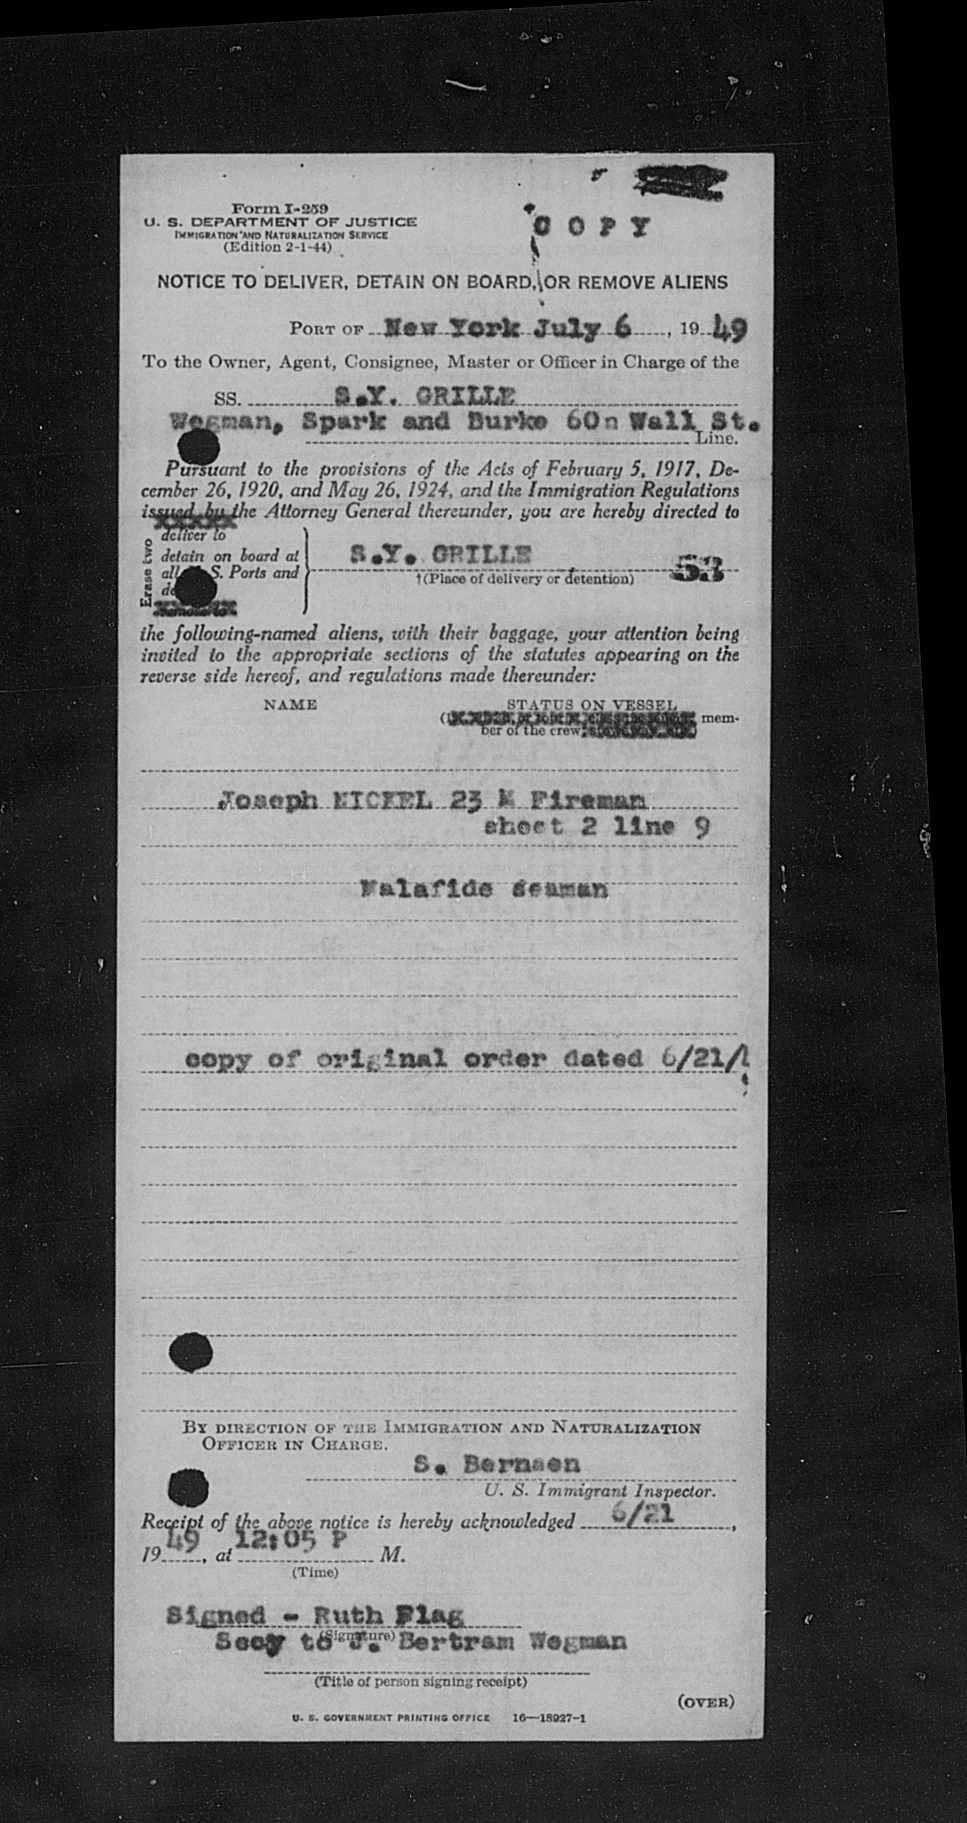 Form I-259
U. S. DEPARTMENT OF JUSTICE
IMMIGRATION AND NATURALIZATION SERVICE
(Edition 2-1-44)
COPY
NOTICE TO DELIVER, DETAIN ON BOARD, OR REMOVE ALIENS
PORT OF New York July 6, 19 49
To the Owner, Agent, Consignee, Master or Officer in Charge of the
SS. S.Y. GRILLE
Wegman, Spark and Burke 60n Wall St.
Line.
Pursuant to the provisions of the Acts of February 5, 1917, De-
cember 26, 1920, and May 26, 1924, and the Immigration Regulations
issued by the Attorney General thereunder, you are hereby directed to
Erase two
deliver to
detain on board at
all S. Ports and
S.Y. GRILLE 53
†(Place of delivery or detention)
the following-named aliens, with their baggage, your attention being
invited to the appropriate sections of the statutes appearing on the
reverse side hereof, and regulations made thereunder:
NAME STATUS ON VESSEL
mem-
ber of the crew
Joseph NICKEL 23 M Fireman
sheet 2 line 9
Malafide seaman
copy of original order dated 6/21/
BY DIRECTION OF THE IMMIGRATION AND NATURALIZATION
OFFICER IN CHARGE.
S. Bernsen
U. S. Immigrant Inspector.
Receipt of the above notice is hereby acknowledged 6/21,
19 49, at 12:05 P M.
(Time)
Signed - Ruth Flag
(Signature)
Secy to J. Bertram Wegman
(Title of person signing receipt)
(OVER)
U. S. GOVERNMENT PRINTING OFFICE 16—18927-1